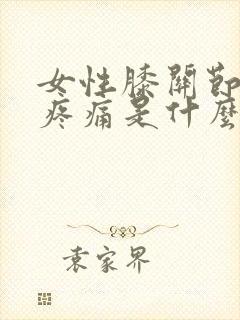 女性膝關節
疼痛是什麼
袁家界